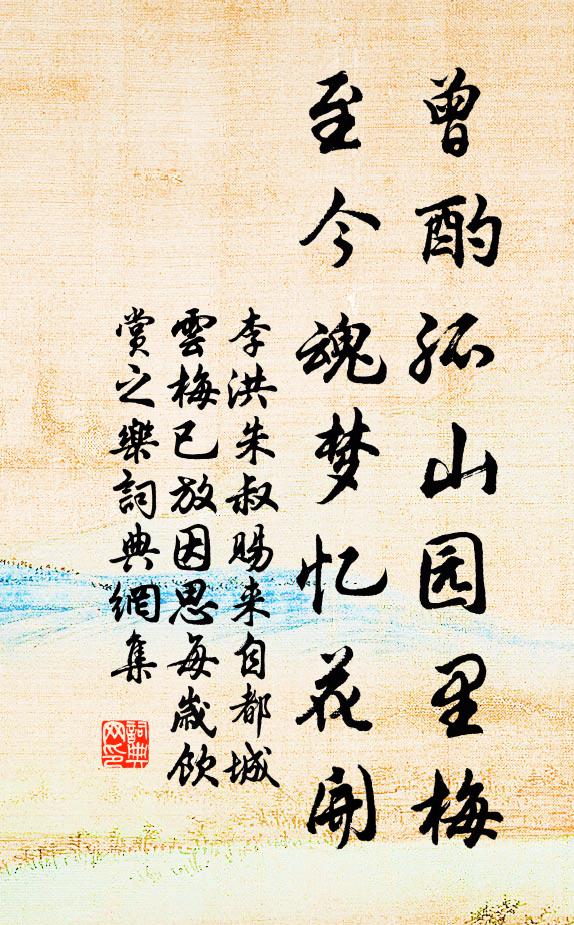 曾酌孤山园里梅
至今魂梦忆花开
李洪朱叔赐来自都城
雲梅已放因思每歳饮
赏之樂詞典網集
詞典网印